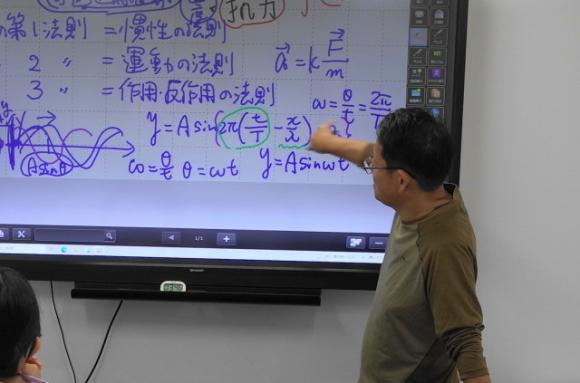 の第1法則 = 慣性の法則
2 〃 = 運動の法則 a⃗ = k F⃗/m
3 〃 = 作用・反作用の法則
ω = θ/t = 2π/T
y = A sin{2π(t/T - x/λ)}
A sinθ
ω = θ/t θ = ωt y = A sin ωt
1/1
SHARP